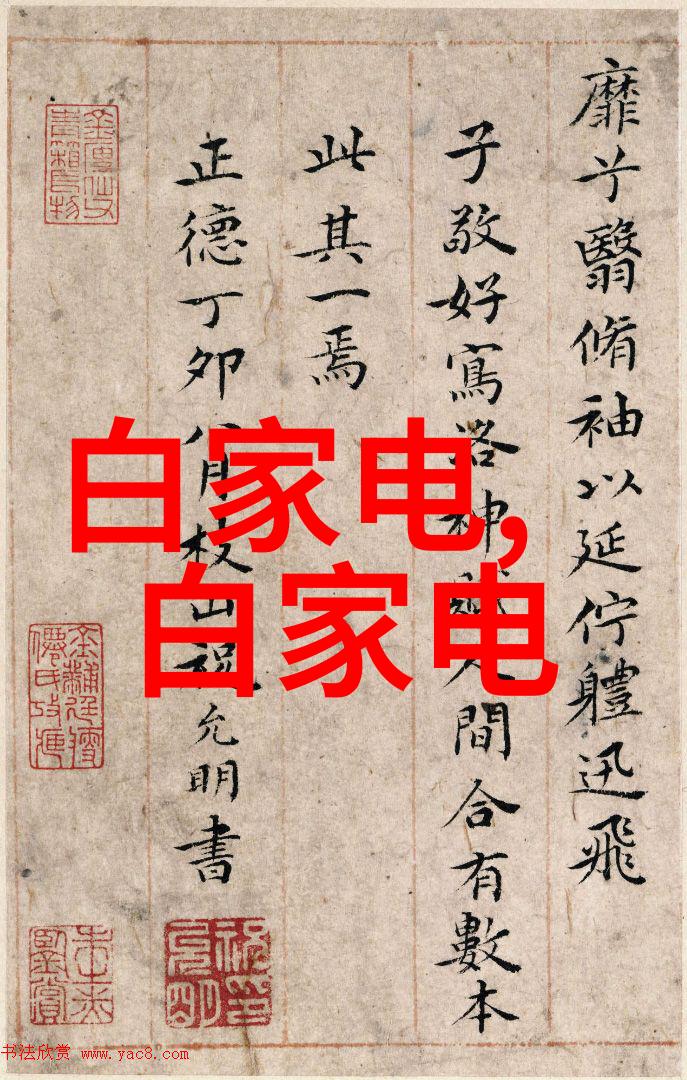 靡兮翳脩袖以延佇體迅飛
子敬好寫洛神賦人間合有數本
此其一焉
正德丁卯八月枝山祝允明書
白家电,
白家电
书法欣赏 www.yac8.com